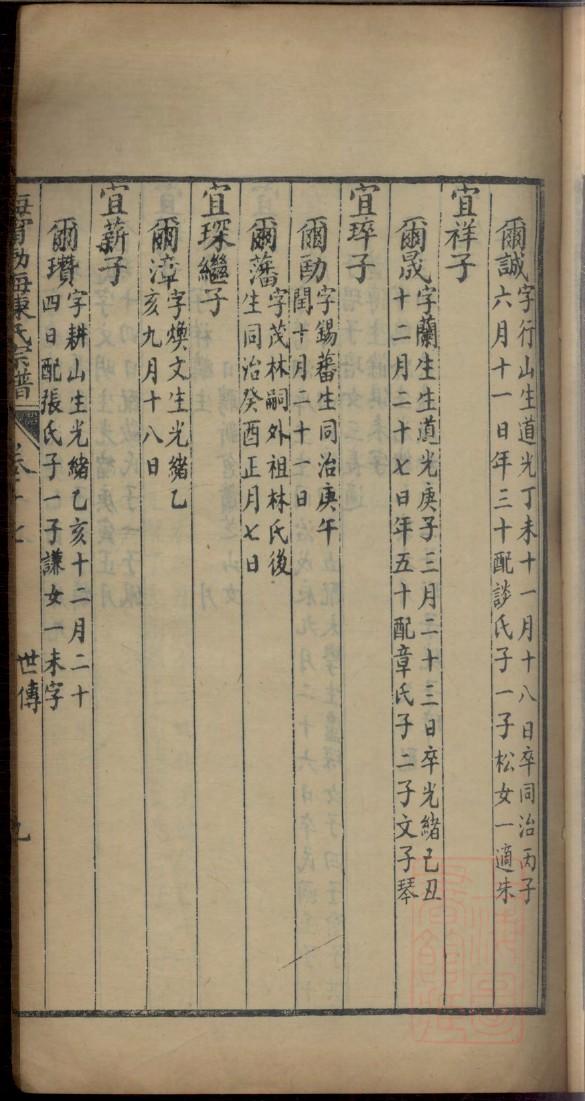 爾誠
字行山生道光丁未十一月十八日卒同治丙子
六月十一日年三十配談氏子一子松女一適朱
宜祥子
爾晟
字蘭生生道光庚子三月二十三日卒光緒己丑
十二月二十七日年五十配章氏子二子文子琴
宜琗子
爾勛
字錫蕃生同治庚午
閏十月二十一日
爾藩
字茂林嗣外祖林氏後
生同治癸酉正月七日
宜琛繼子
爾漳
字煥文生光緒乙
亥九月十八日
宜薪子
爾瓚
字耕山生光緒乙亥十二月二十
四日配張氏子一子謙女一未字
海甯渤海陳氏宗譜
卷十七
世傳
九